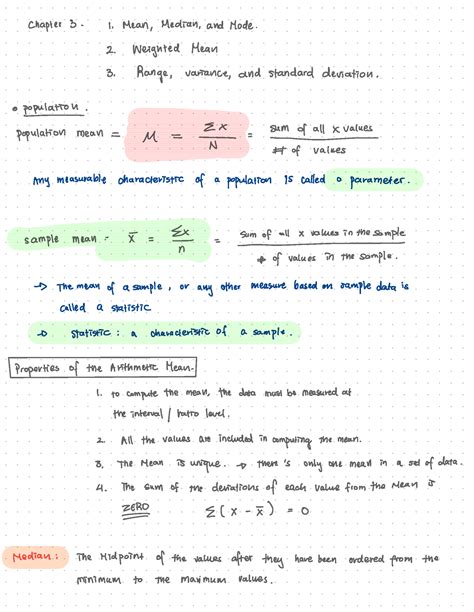 Chapter 3. 1. Mean, Median, and Mode.
2. Weighted Mean
3. Range, variance, and standard deviation.
• population.
population mean = M = Σx / N = sum of all x values / # of values
Any measurable characteristic of a population is called a parameter.
sample mean - x̄ = Σx / n = sum of all x values in the sample / # of values in the sample.
→ The mean of a sample, or any other measure based on sample data is
called a statistic
→ Statistic : a characteristic of a sample.
Properties of the Arithmetic Mean.
1. to compute the mean, the data must be measured at
the interval / ratio level.
2. All the values are included in computing the mean.
3. The Mean is unique. → there's only one mean in a set of data.
4. The sum of the deviations of each value from the Mean is
ZERO Σ(x - x̄) = 0
Median: The Midpoint of the values after they have been ordered from the
minimum to the maximum values.